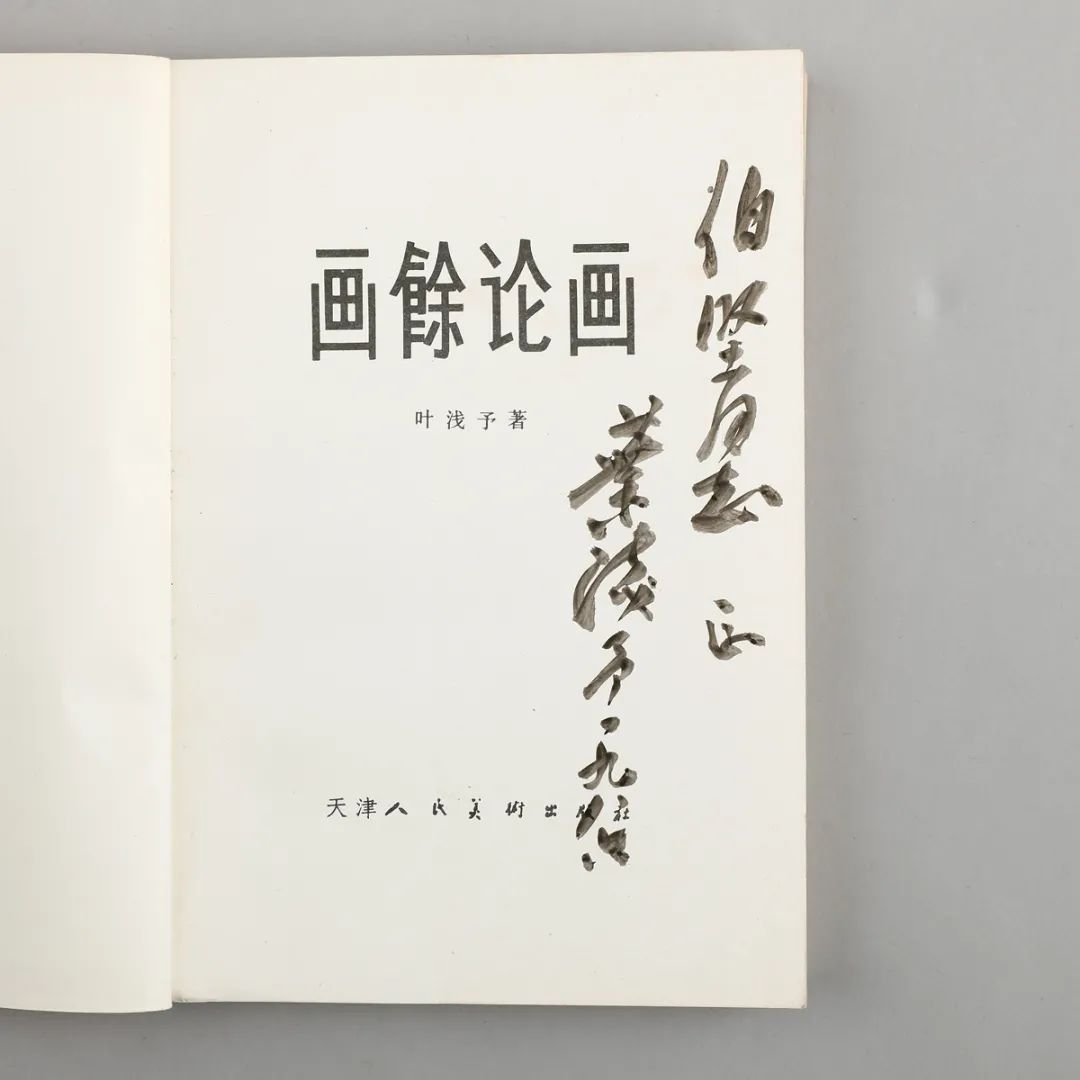 画餘论画
叶浅予著
天津人民美術出版社
伯堅同志 正
葉浅予 一九八